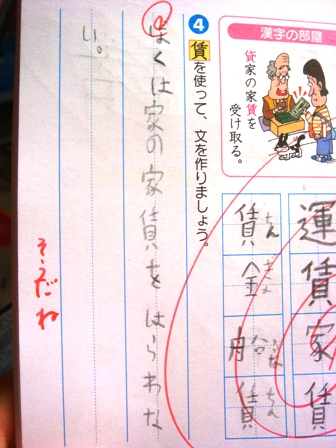 漢字の部屋
貸家の家賃を
受け取る。
運賃
家賃
賃金
ちん
船賃
ちん
4
賃を使って、文を作りましょう。
ぼくは家の家賃をはらわな
い。
そうだね